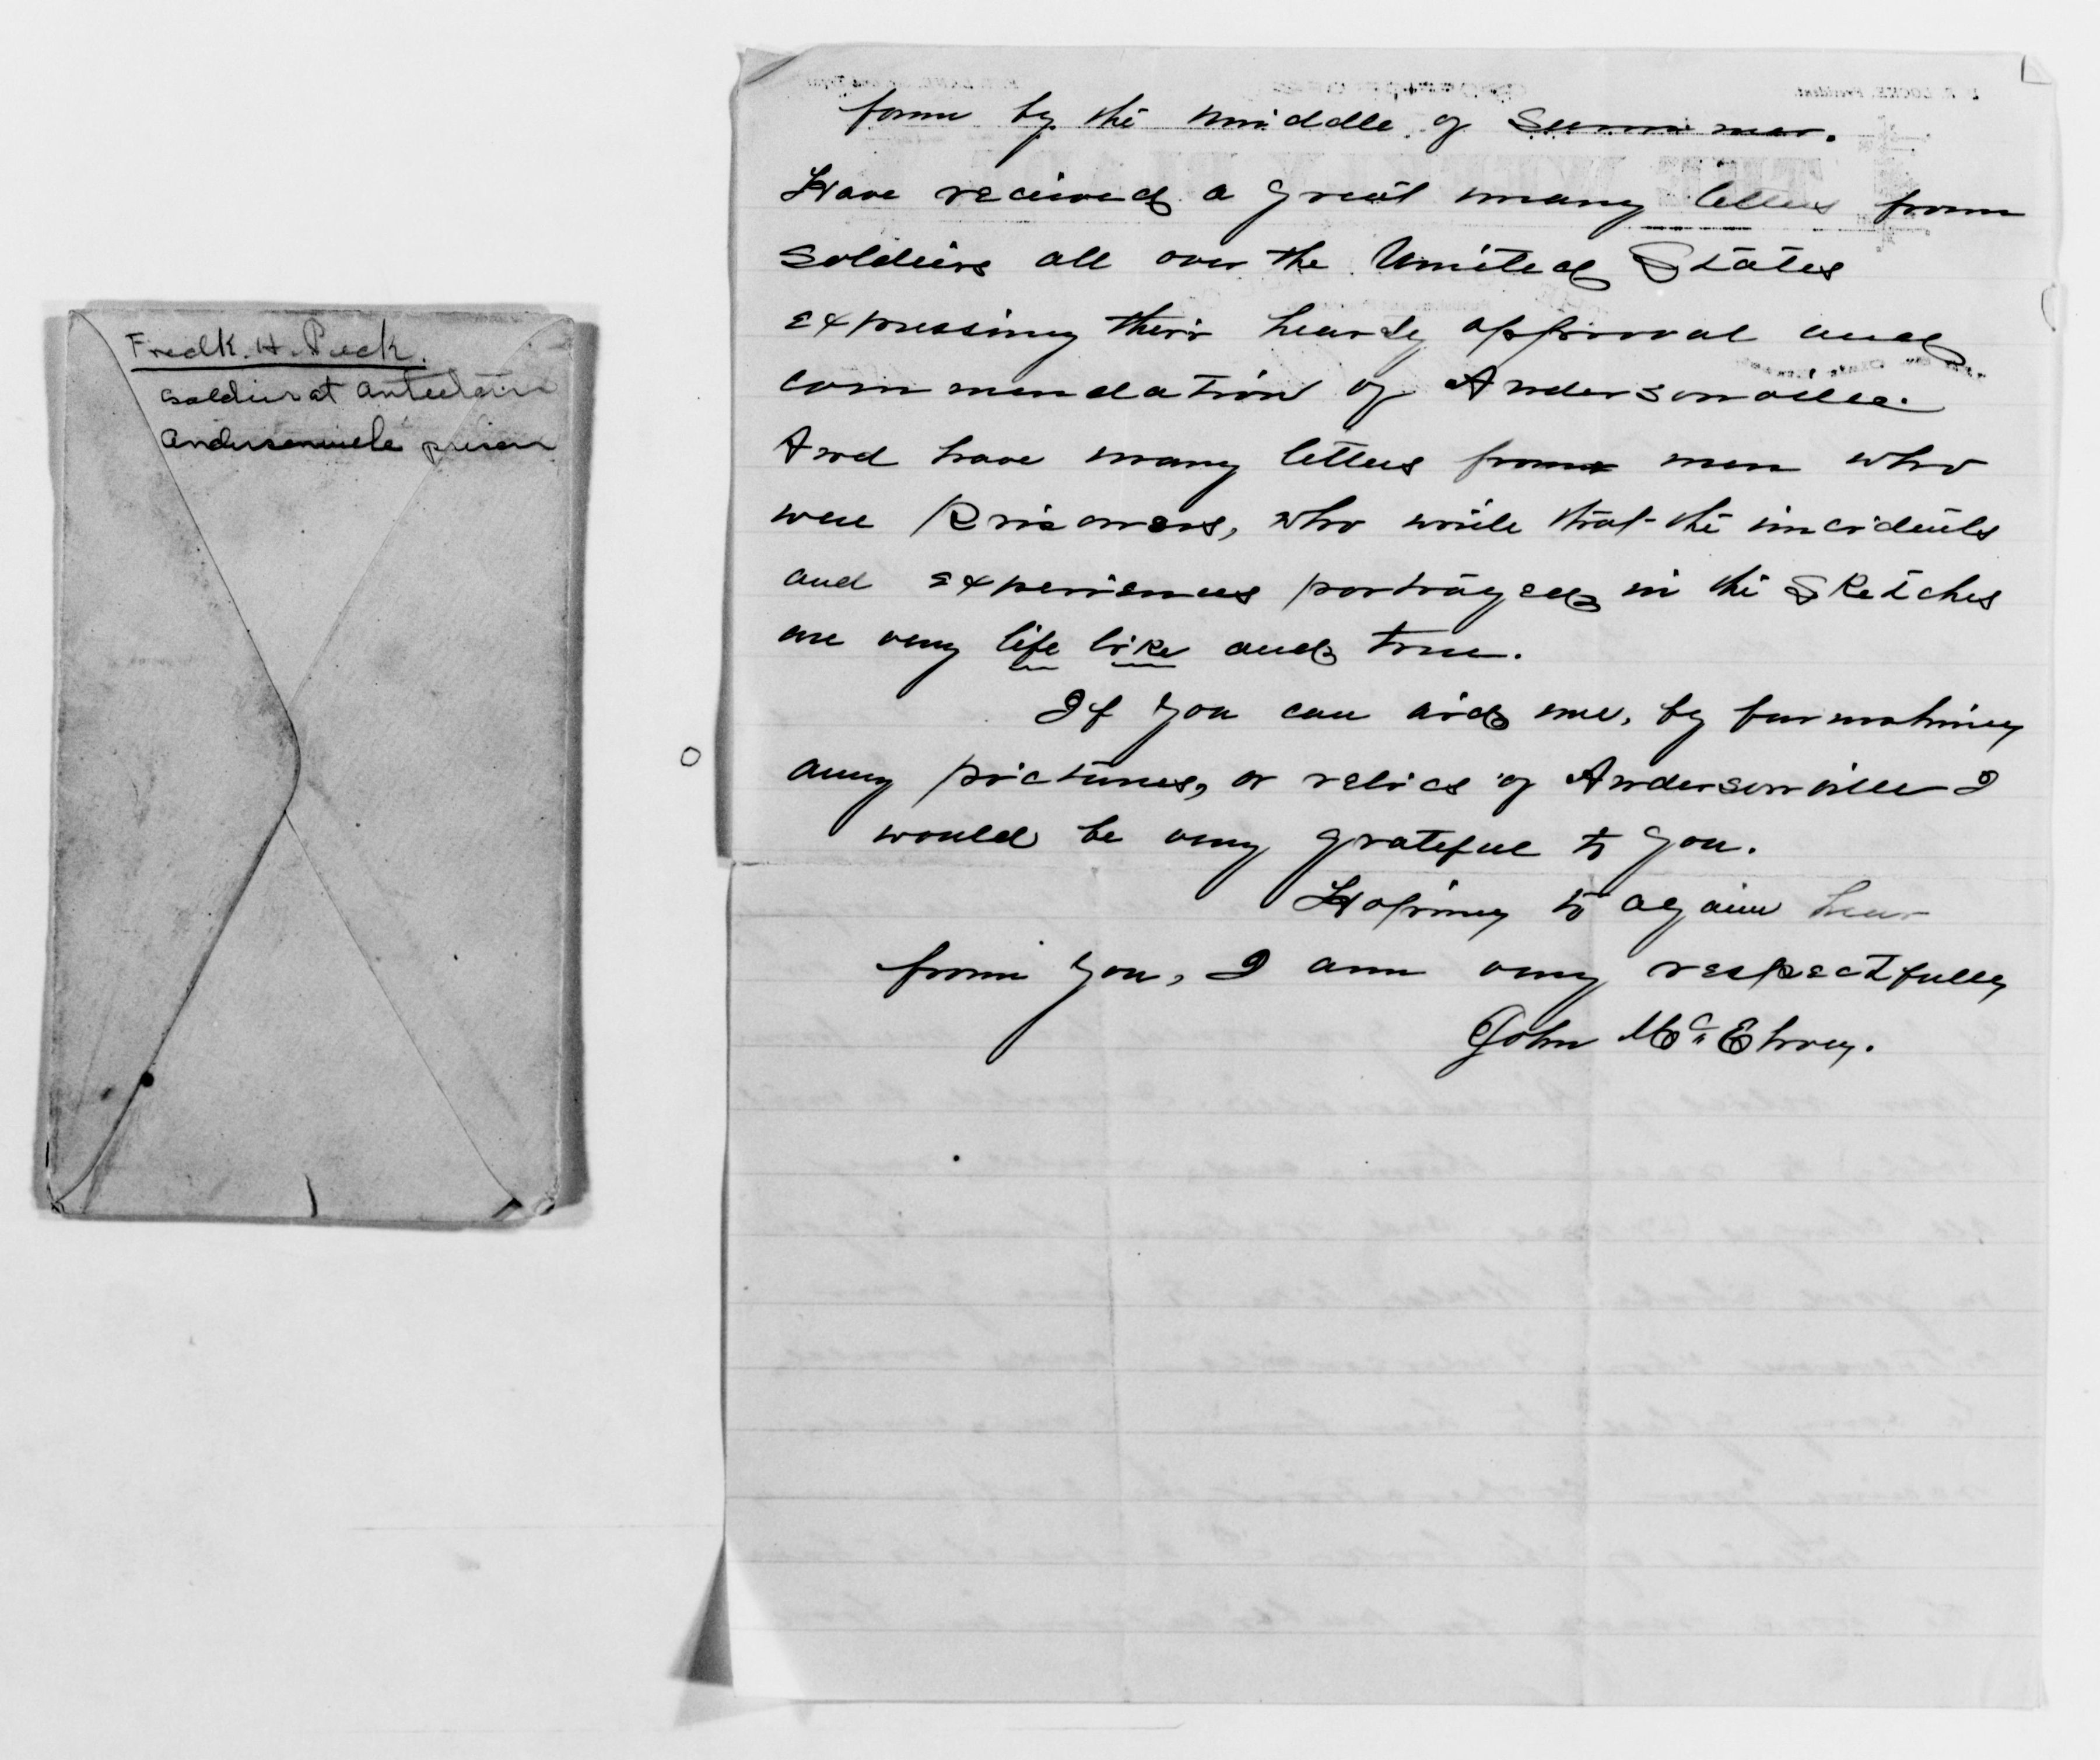 Fredk. H. Peck.
Soldier at Antietam
Andersonville prison
form by the middle of Summer.
Have received a great many letters from
Soldiers all over the United States
expressing their hearty approval and
commendation of Andersonville.
And have many letters from men who
were Prisoners, who write that the incidents
and experiences portrayed in the Sketches
are very life like and true.
If you can aid me, by furnishing
any pictures, or relics of Andersonville I
would be very grateful to you.
Hoping to again hear
from you, I am very respectfully
John McElroy.